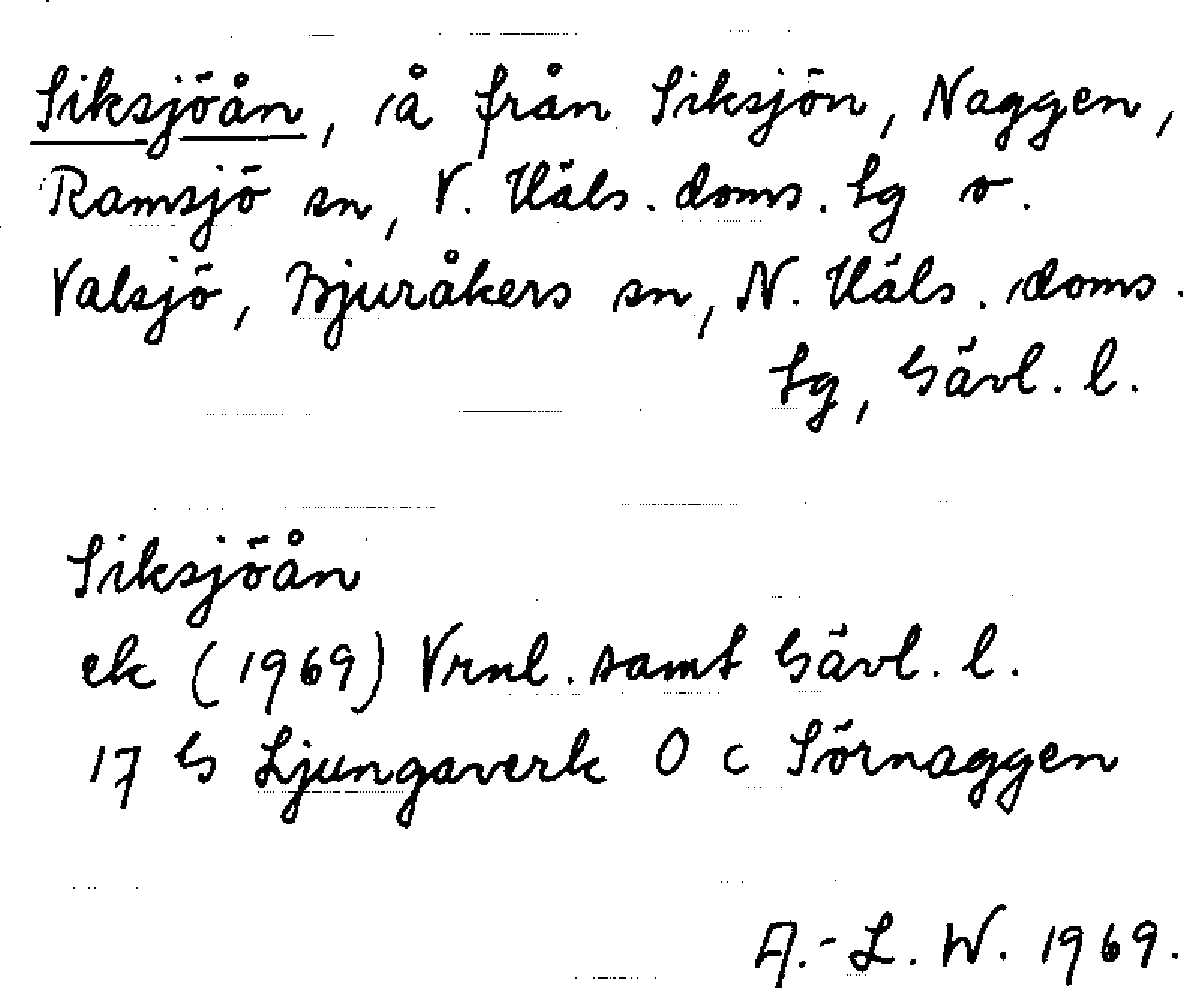 Siksjöån, å från Siksjön, Naggen,
Ramsjö sn, V. Häls. doms. lg o.
Valsjö, Bjuråkers sn, N. Häls. doms.
lg, Gävl. l.
Siksjöån
ek (1969) Vrnl. samt Gävl. l.
17 G Ljungaverk O c Sörnaggen
A.-L. W. 1969.